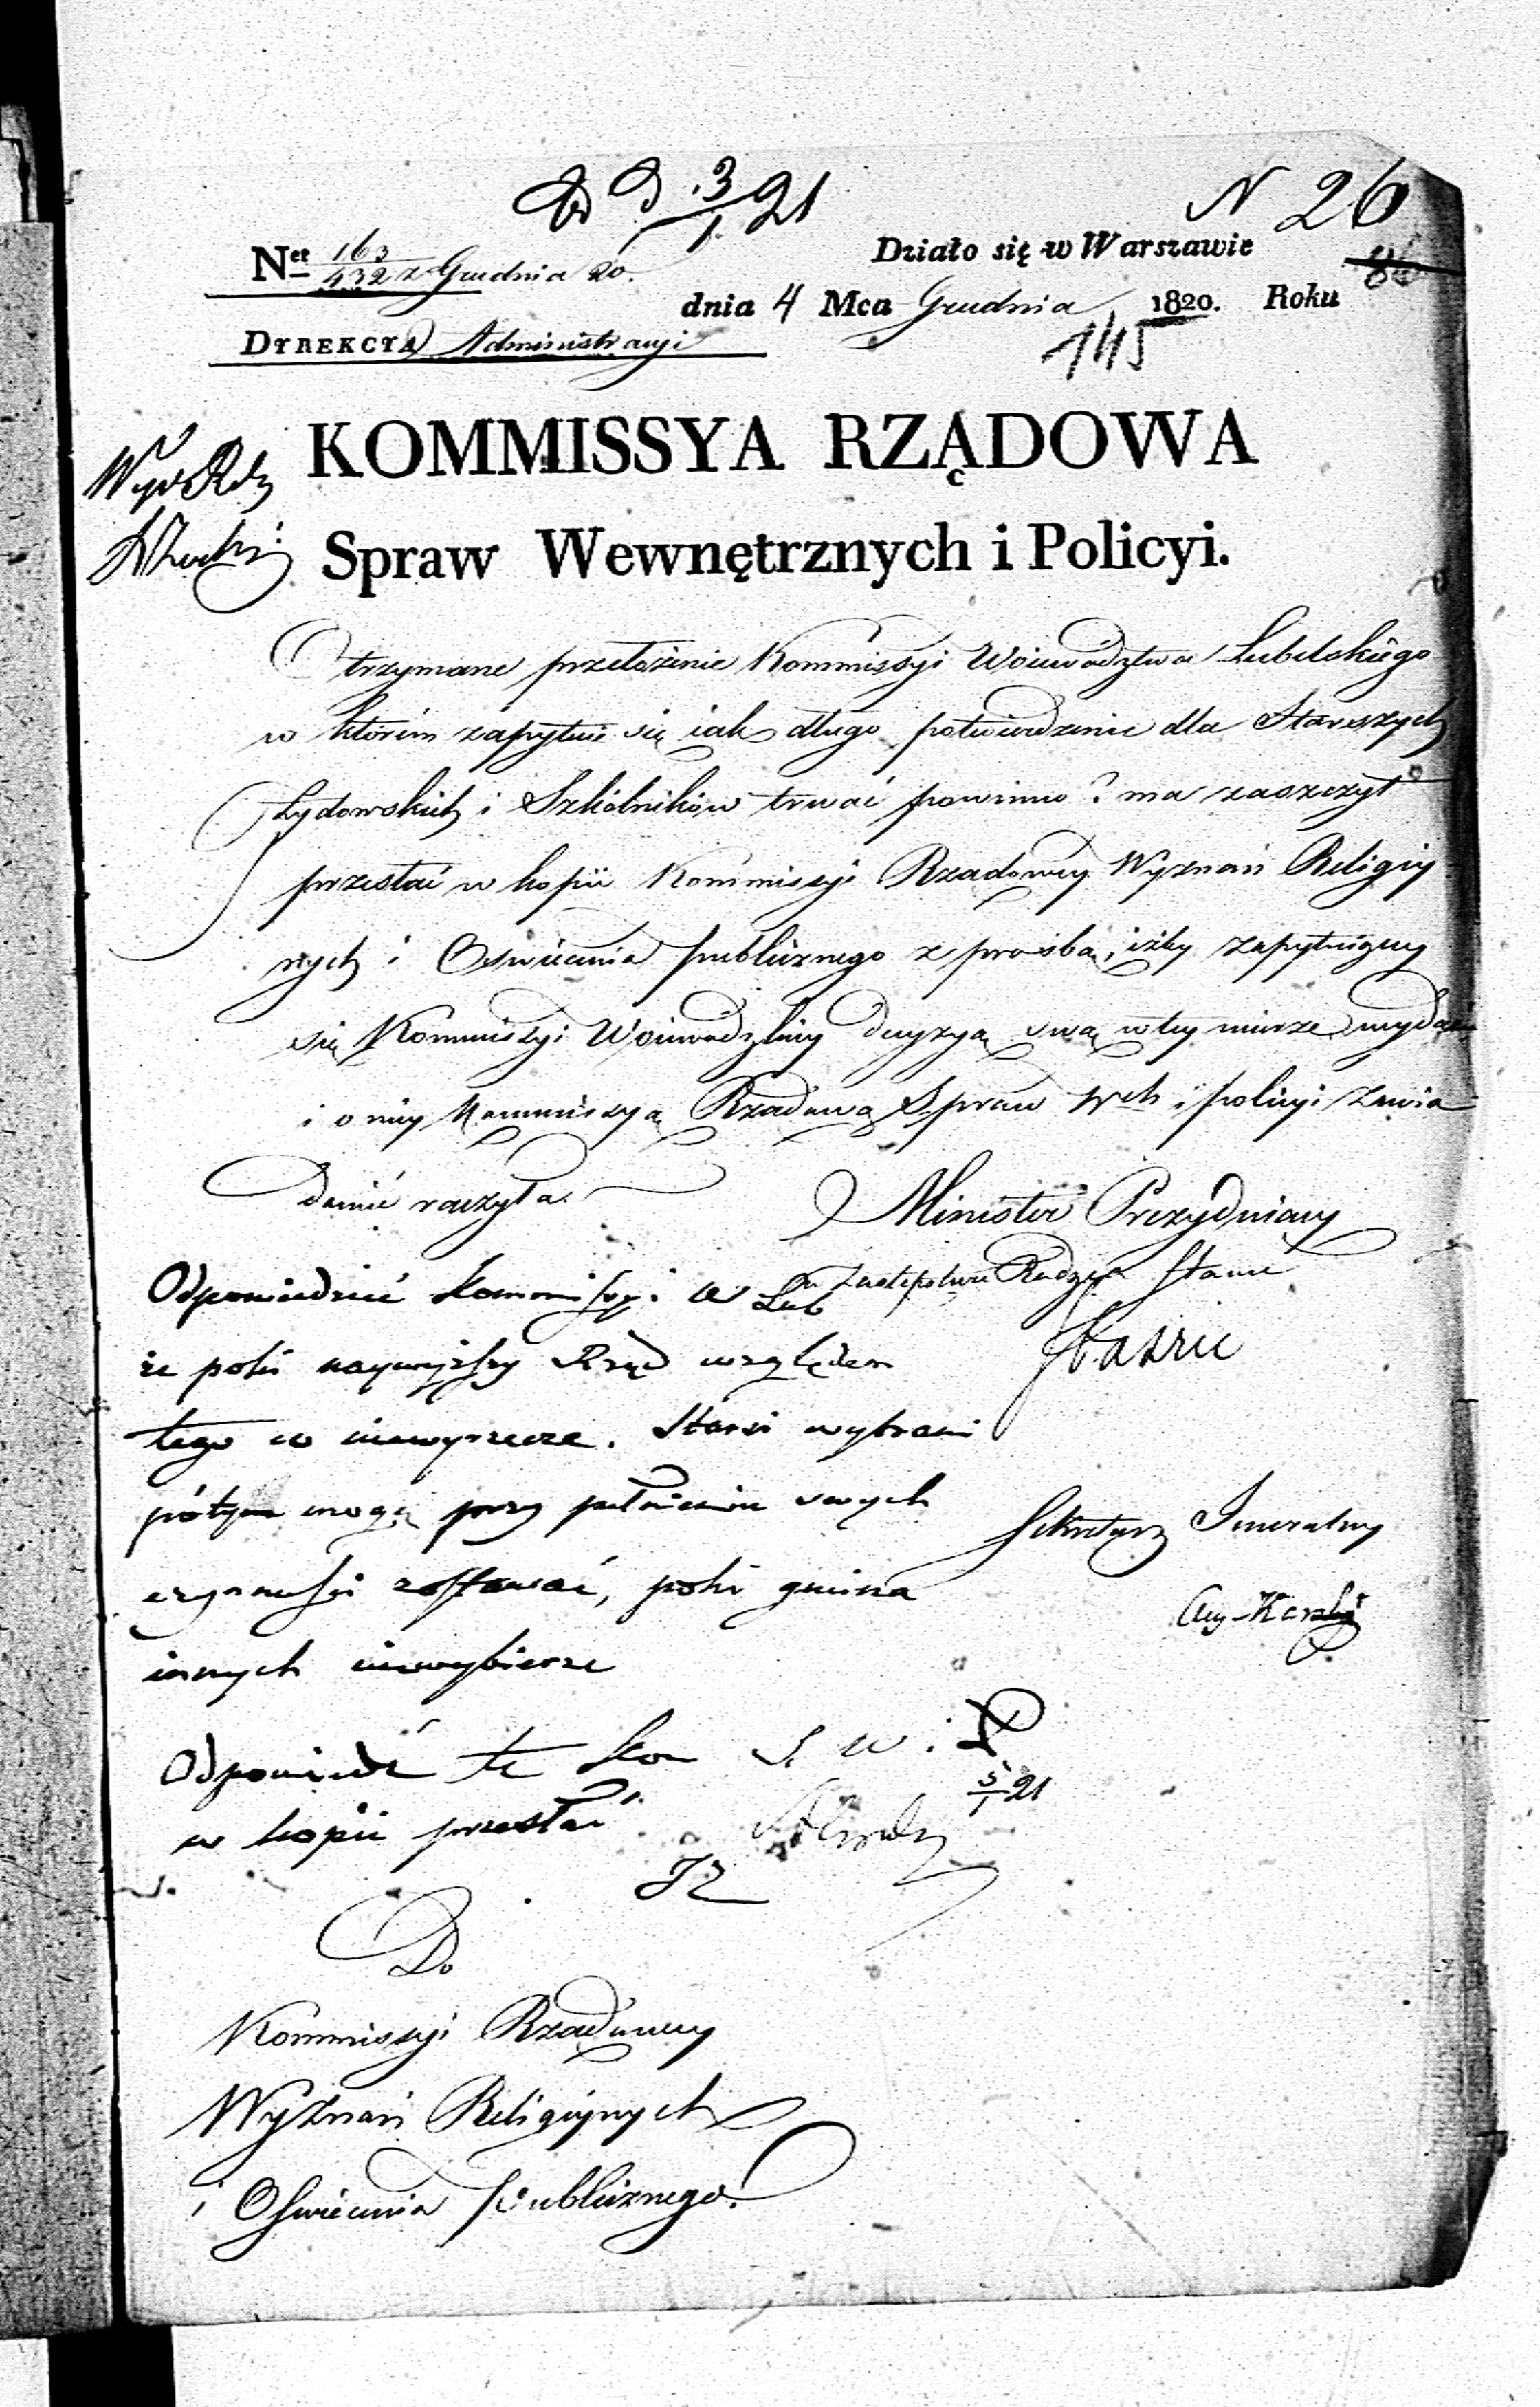 3/1 21
N 26
Ner 163/432 z Grudnia 20.
Działo się w Warszawie
dnia 4 Mca Grudnia 1820. Roku
145
DYREKCYA Administracyi
KOMMISSYA RZĄDOWA
Spraw Wewnętrznych i Policyi.
Otrzymane przełożenie Kommissyi Woiewództwa Lubelskiego
w którém zapytuie się iak długo potwierdzenie dla Starszych
Żydowskich i Szkólników trwać powinno? ma zaszczyt
przesłać w kopii Kommissyi Rządowey Wyznań Religiy
nych i Oświecenia publicznego z prośbą, iżby zapytuiącey
się Kommissyi Woiewódzkiey decyzyą swą w tey mierze wydać
i o niey Kommissyą Rządową Spraw Wch i policyi zawia
domić raczyła.
Minister Prezyduiący
w Zastępstwie Radzca Stanu
Staszic
Odpowiedzieć kommissyi W Lub
że póki naywyższy Rząd względem
tego co niewyrzecze. Starsi wybrani
póty mogą przy pełnieniu swych
czynności zostawać, póki gmina
innych niewybierze
Sekretarz Jeneralny
Aug Karski
Odpowiedź tę Kom S. W. i P
w kopii przesłać
5/1 21
Do
Kommissyi Rządowey
Wyznań Religiynych
i Oświecenia Publicznego.